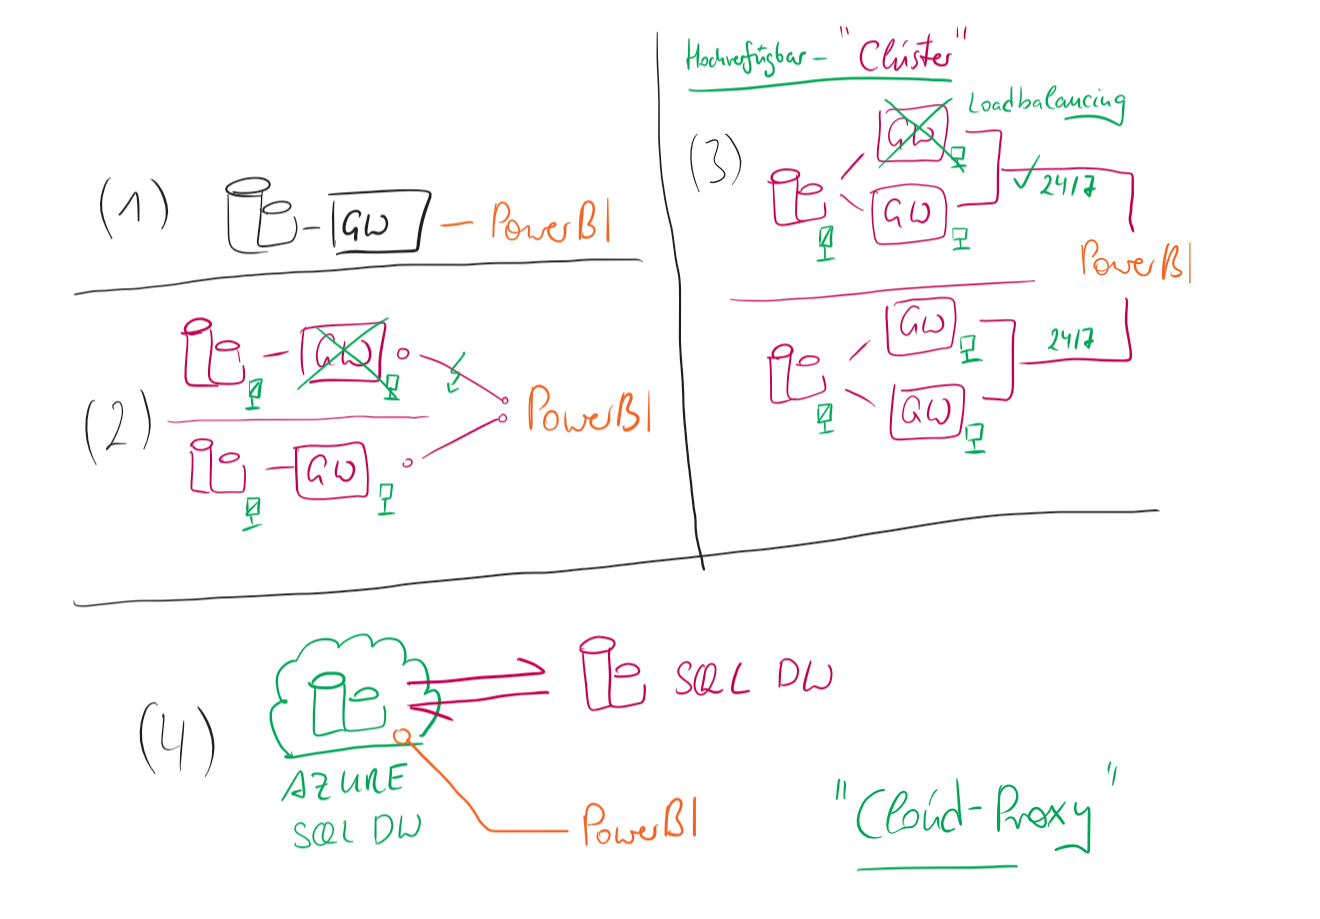 (1)
GW
PowerBI
(2)
GW
GW
PowerBI
Hochverfügbar - "Cluster"
Loadbalancing
(3)
GW
GW
24/7
PowerBI
GW
GW
24/7
(4)
SQL DW
AZURE
SQL DW
PowerBI
"Cloud-Proxy"